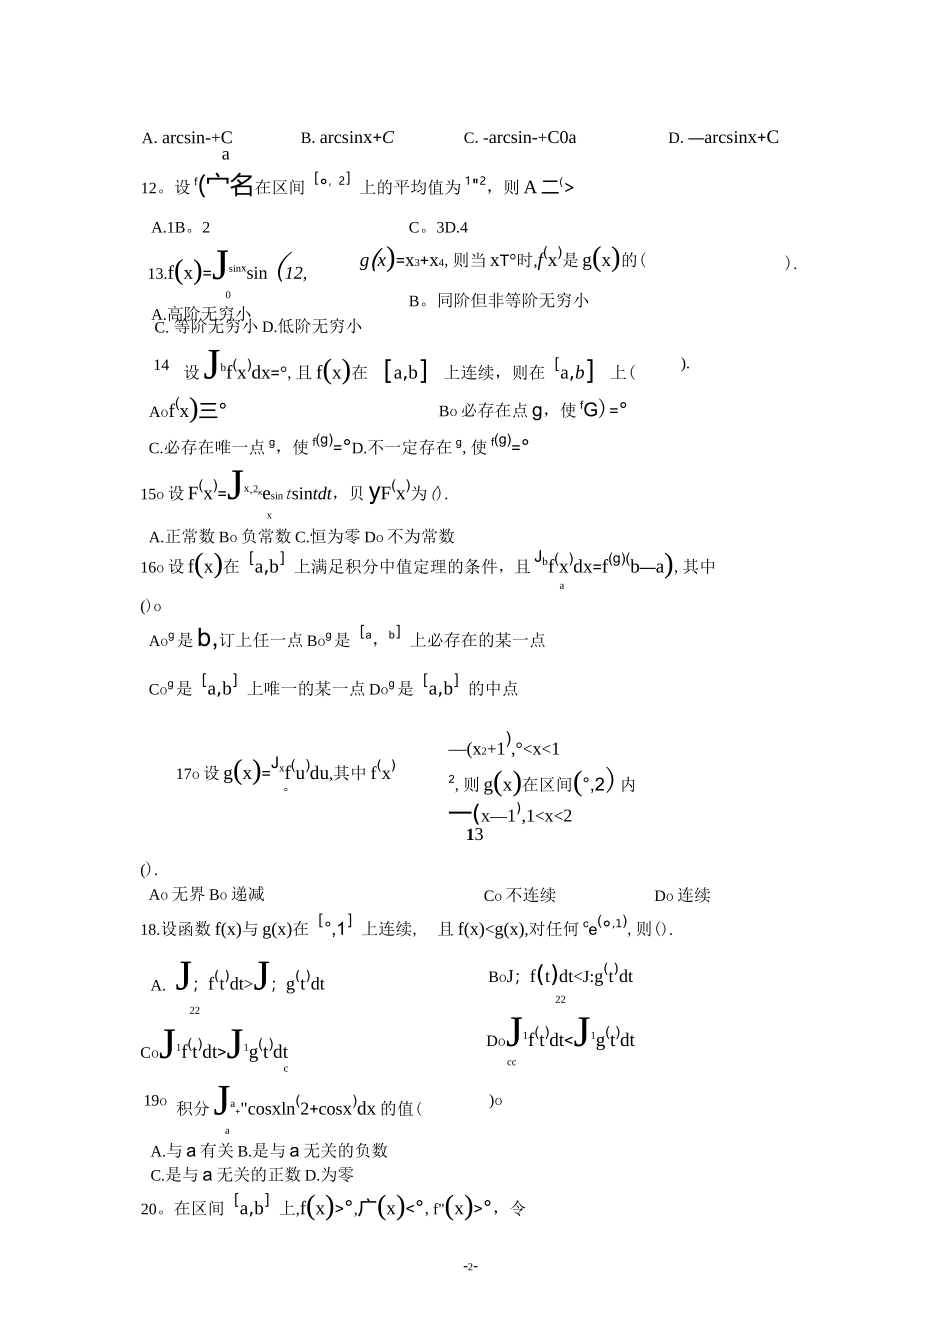 A. arcsin-+C B. arcsinx+C C. -arcsin-+C0a D. —arcsinx+C
a
12。设 f(宀名在区间 [°, 2] 上的平均值为 1"2，则 A 二(>
A.1B。2 C。3D.4
13.f(x)=Jsinxsin (12, g(x)=x3+x4, 则当 xT°时,f(x)是 g(x)的( ).
0
A.高阶无穷小 B。同阶但非等阶无穷小
C. 等阶无穷小 D.低阶无穷小
14 设 Jbf(x)dx=°, 且 f(x)在 [a,b] 上连续，则在 [a,b] 上( ).
AOf(x)三° BO 必存在点 g，使 fG) =°
C.必存在唯一点 g，使 f(g)=°D.不一定存在 g, 使 f(g)=°
15O 设 F(x)=Jx,2xesin tsintdt，贝 yF(x)为().
x
A.正常数 BO 负常数 C.恒为零 DO 不为常数
16O 设 f(x)在 [a,b] 上满足积分中值定理的条件，且 Jbf(x)dx=f(g)(b—a), 其中
a
()O
AOg是 b,订上任一点 BOg是 [a，b] 上必存在的某一点
COg是 [a,b] 上唯一的某一点 DOg是 [a,b] 的中点
—(x2+1),°<x<1
17O 设 g(x)=Jxf(u)du,其中 f(x) 2, 则 g(x)在区间(°,2) 内
°
—(x—1),1<x<2
13
().
AO 无界 BO 递减 CO 不连续 DO 连续
18.设函数 f(x)与 g(x)在 [°,1] 上连续, 且 f(x)<g(x),对任何 ce(°,1), 则().
A. J; f(t)dt>J; g(t)dt BOJ; f(t)dt<J:g(t)dt
22 22
COJ1f(t)dt>J1g(t)dt DOJ1f(t)dt<J1g(t)dt
c cc
19O 积分 Ja+"cosxln(2+cosx)dx 的值( )O
a
A.与 a 有关 B.是与 a 无关的负数
C.是与 a 无关的正数 D.为零
20。在区间 [a,b] 上,f(x)>°,广(x)<°, f"(x)>°，令
-2-